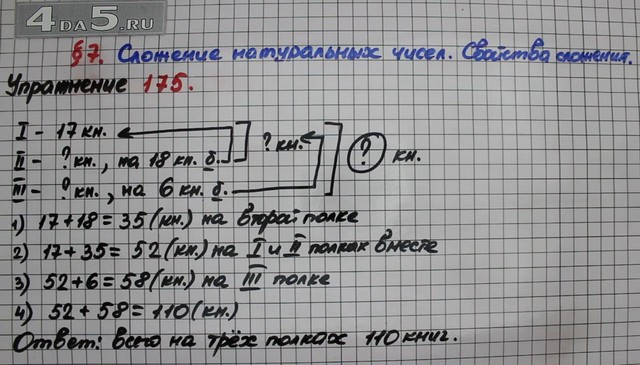 4DA5.RU
§7. Сложение натуральных чисел. Свойства сложения.
Упражнение 175.
I - 17 кн.
II - ? кн., на 18 кн. б. ? кн. ? кн.
III - ? кн., на 6 кн. б.
1) 17+18=35(кн.) на второй полке
2) 17+35=52(кн.) на I и II полках вместе
3) 52+6=58(кн.) на III полке
4) 52+58=110(кн.)
Ответ: всего на трёх полках 110 книг.